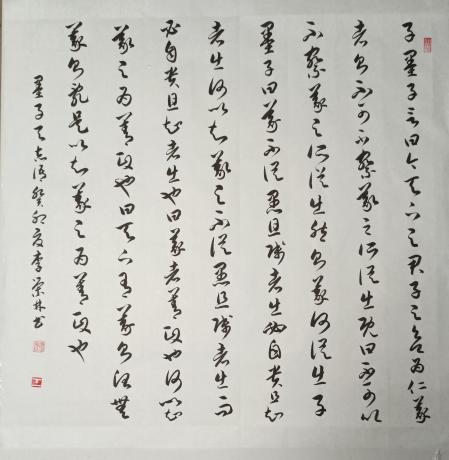 子墨子言曰今天下之君子之欲為仁義
者則不可不察義之所從出既曰不可以
不察義之所從出然則義何從出子
墨子曰義不從愚且賤者出必自貴且知
者出何以知義之不從愚且賤者出而
必自貴且知者出也曰義者善政也何以知
義之為善政也曰天下有義則治無
義則亂是以知義之為善政也
墨子天志語癸卯夏李榮林書